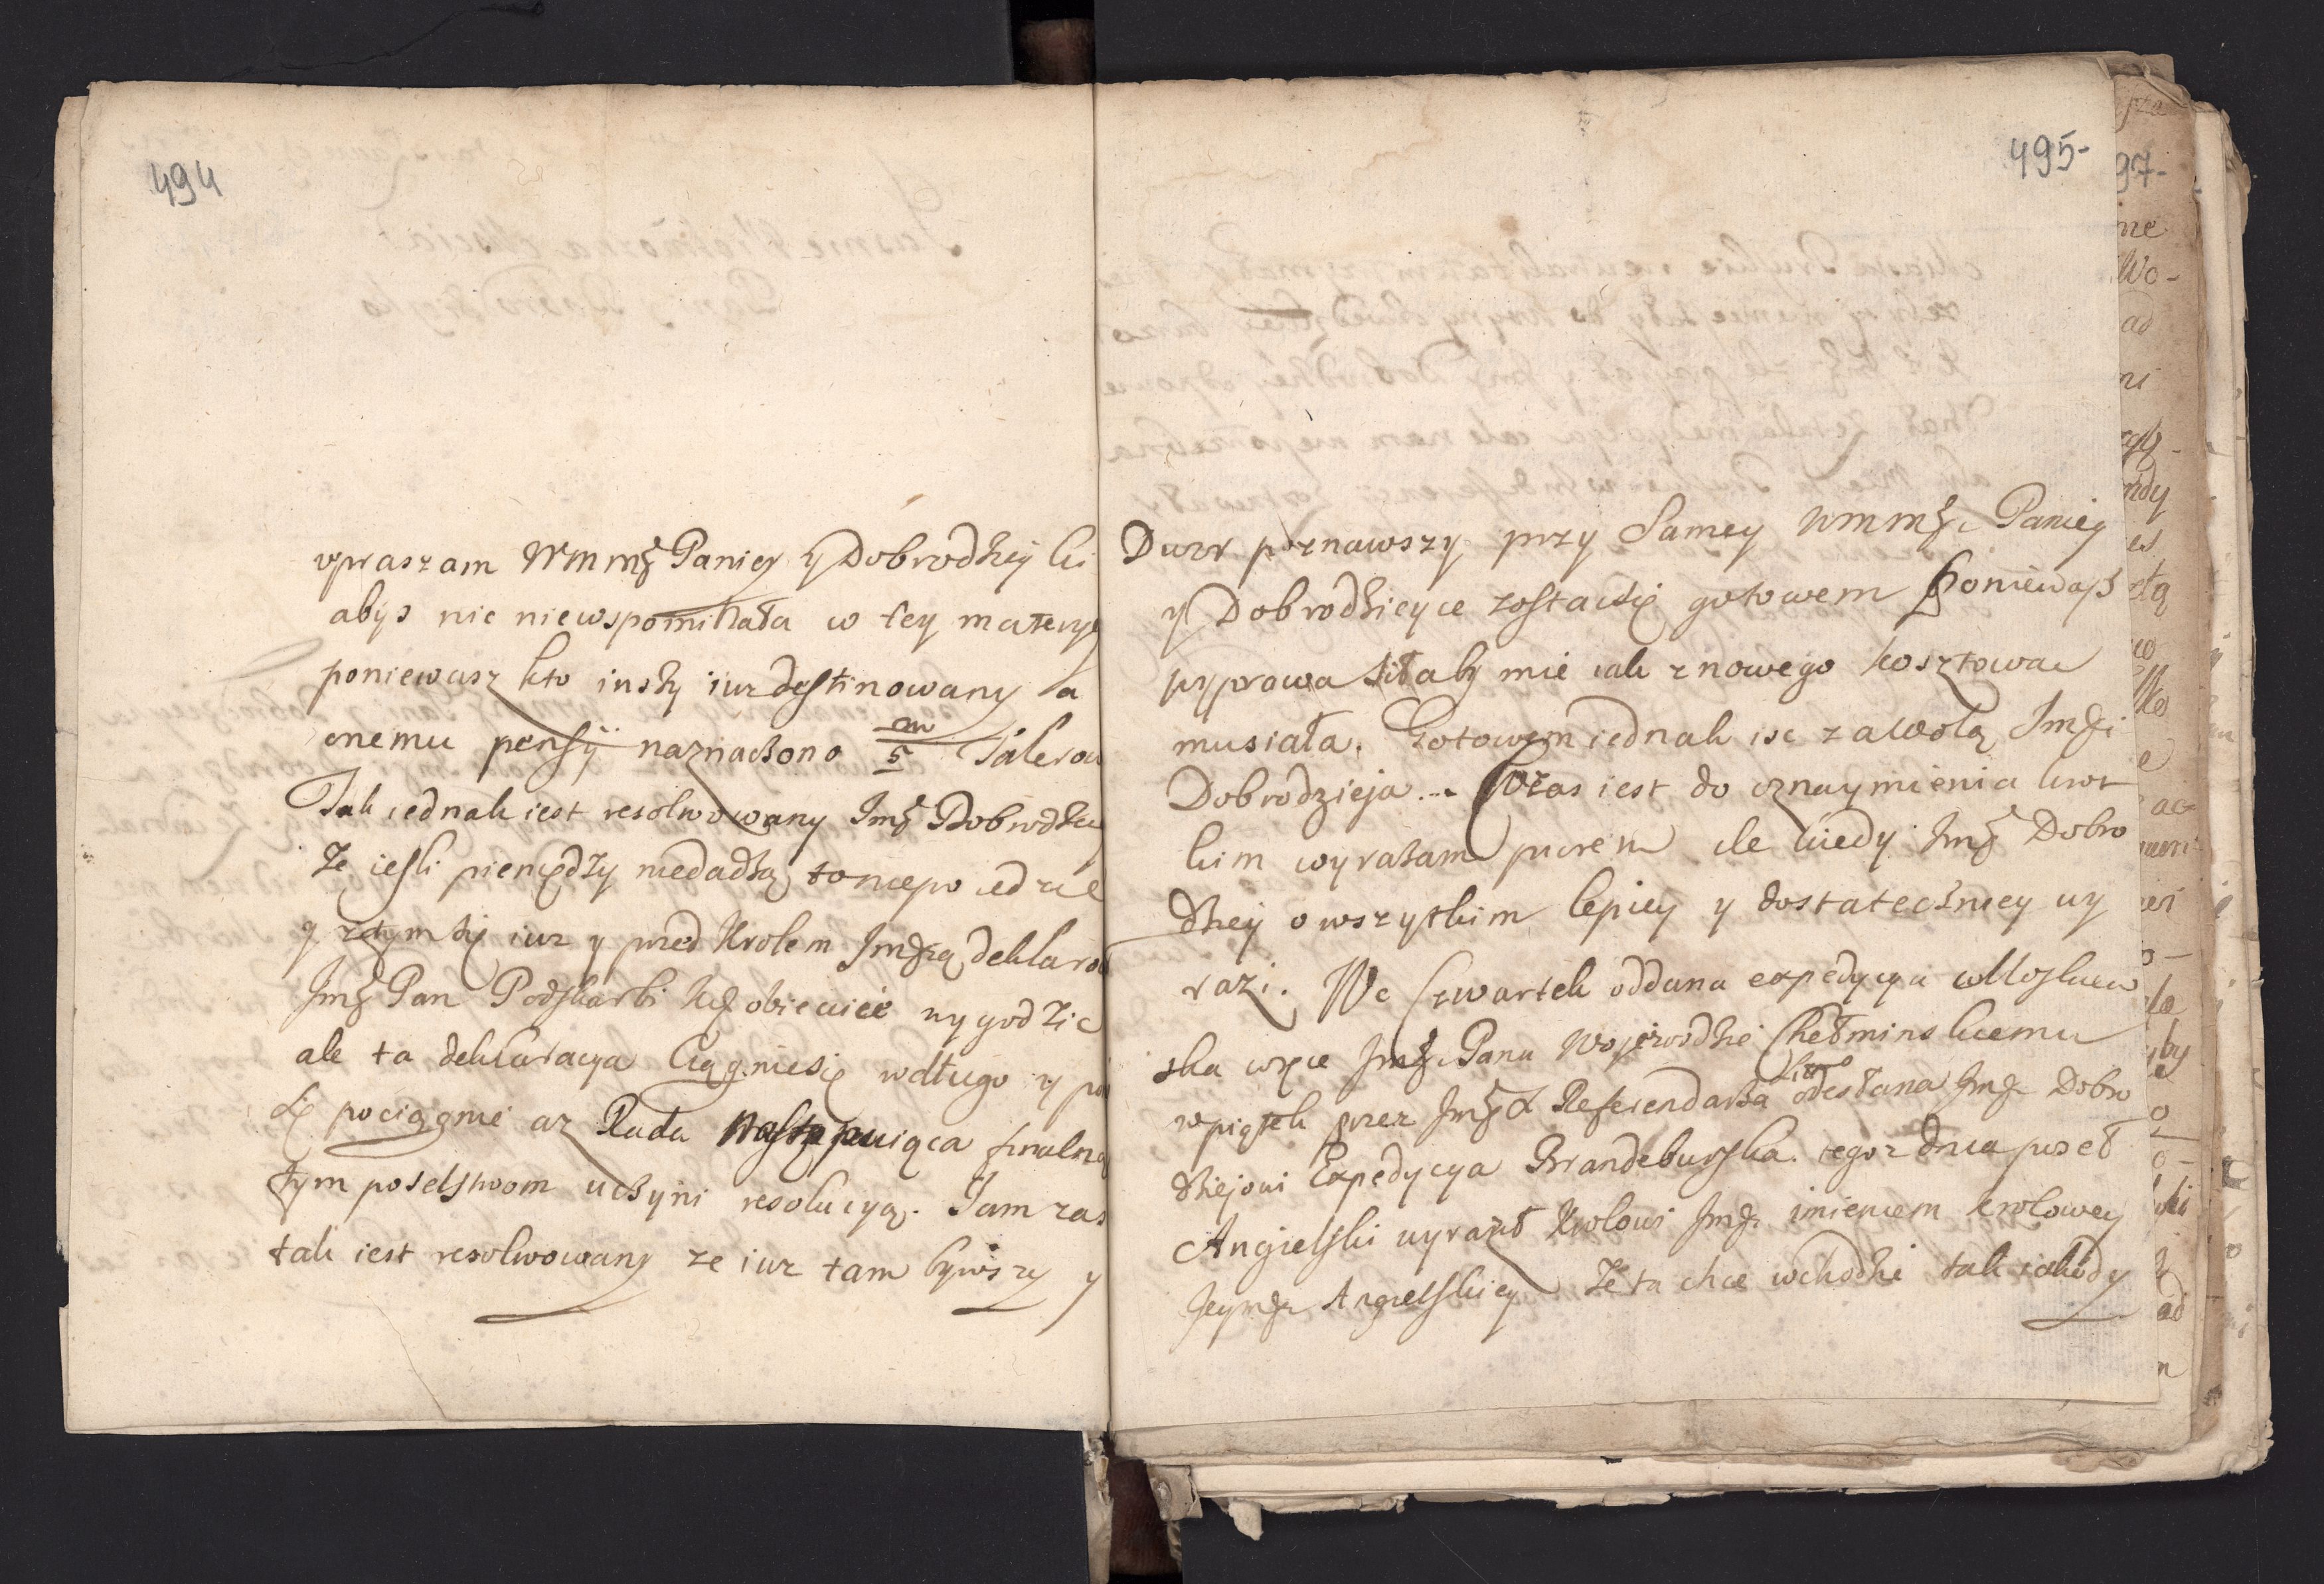 494
upraszam WMmść Paniey y Dobrodzięÿ ki
abys nic niewspominała w tey matery
poniewasz kto inszy iuz destinowany a
onemu pensÿi naznaczono m/5 Talerow
Tak iednak iest resolwowany Imść Dobrodzie
Ze iesli pieniędzy niedadzą to niepoiedzie
y ztym się iuz y przed Krolem Imścią deklarow
Imść Pan Podskarbi obiecuie wygodzic
ale ta deklaracya Ciągniesię wdługo y
się pociągnie az Rada Następuiąca finalną
tym poselstwom uczyni resolucyą. Iam zas
tak iest resolwowany ze iuz tam bywszy y
495-
Dwor poznawszy przy Samey WMMści Paniey
y Dobrodzicyce zostacsię gotowem Poniewasz
wyprawa siłaby mie iak znowego kosztowac
musiała. Gotowem iednak isc zawolą Imści
Dobrodzieja... Czas iest do oznaymienia krot
kim wyrazam piorem ile kiedy Imść Dobro
dzieÿ o wszytkim lepiey y dostateczniey wy
razi. We Czwartek oddana expedycya Moskiew
ska wręce Imści Panu Wojewodzie Chełminskiemu
wpiątek przez Imści Referendarza Litto odesłana Imści Dobro
dziejowi Expedycya Brandeburska. tegoz dnia poseł
Angielski wyraził Krolowi Imści imieniem krolowey
Jeymści Angielskiey Ze ta chce wchodzic tak iakody
97-